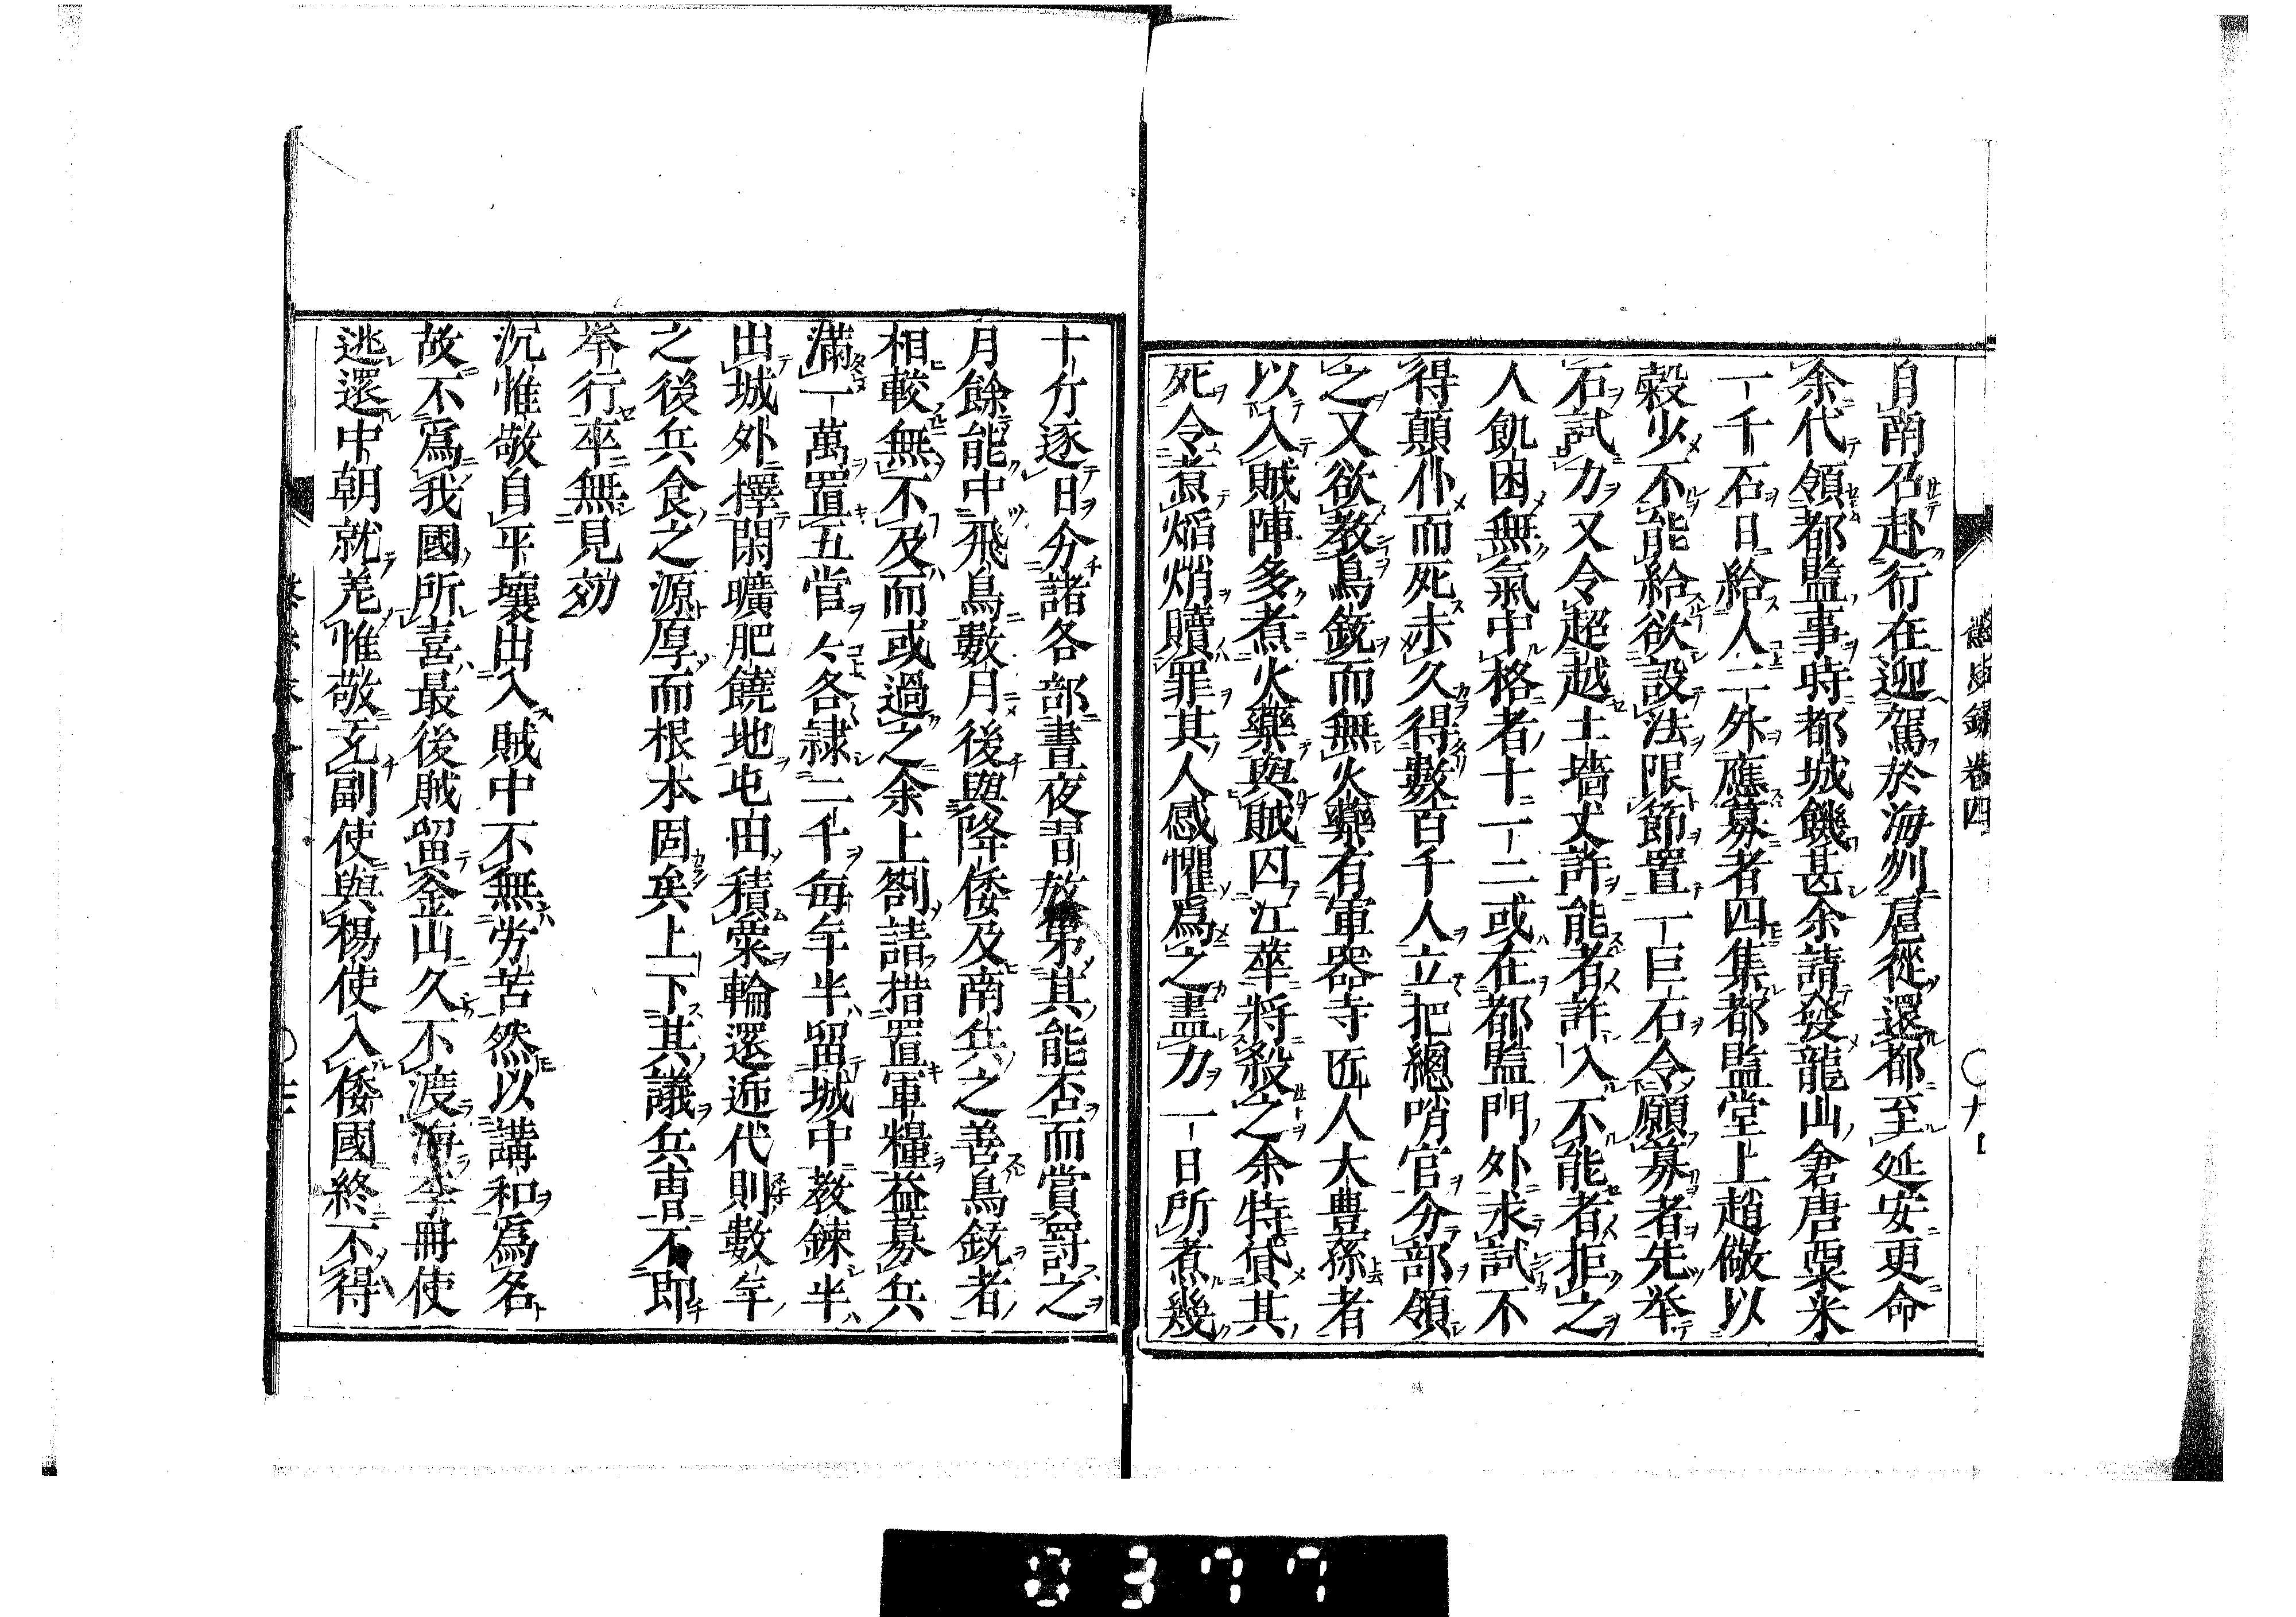 自南召赴行在迎駕於海州扈從還都至延安更命
余代領都監事時都城饑甚余請發龍山倉唐粟米
一千石日給人二外應募者四集都監堂上趙儆以
穀少不能給欲設法限節置一巨石令願募者先举
石試力又令超越土墻丈許能者許入不能者拒之
人飢困無氣中格者十一二或在都監門外求試不
得顛仆而死未久得數百千人立把總哨官分部領
之又欲教鳥銃而無火藥有軍器寺匠人大豊孫者
以入賊陣多煮火藥與賊囚江華將殺之余特貸其
死令煮焰焇贖罪其人感懼爲之盡力一日所煮幾
十斤逐日分諸各部晝夜習放第其能否而賞罰之
月餘能中飛鳥數月後與降倭及南兵之善鳥銃者
相較無不及而或過之余上劄請措置軍糧益募兵
滿一萬置五営々各隷二千毎年半留城中教鍊半
出城外擇閑曠肥饒地屯田積粟輪還逓代則數年
之後兵食之源厚而根本固矣上下其議兵曹不即
举行卒無見効
沉惟敬自平壤出入賊中不無労苦然以講和爲名
故不爲我國所喜最後賊留釜山久不渡海李冊使
逃還中朝就羌惟敬充副使與楊使入倭國終不得
懲毖録卷四
〇九
0377